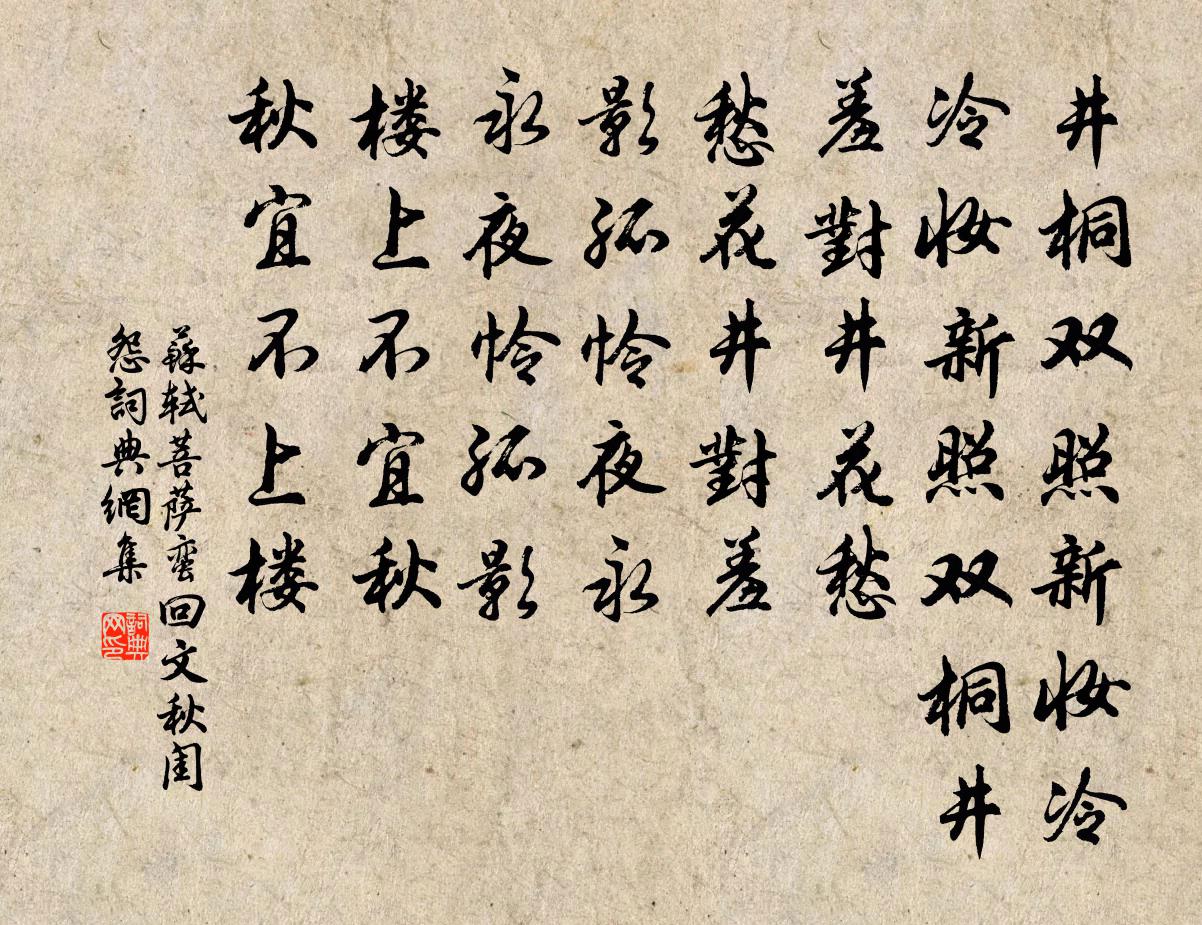 井桐双照新妆冷
冷妆新照双桐井
羞對井花愁
愁花井對羞
影孤怜夜永
永夜怜孤影
楼上不宜秋
秋宜不上楼
蘇轼菩萨蛮回文秋闺
怨詞典網集
詞典
网印